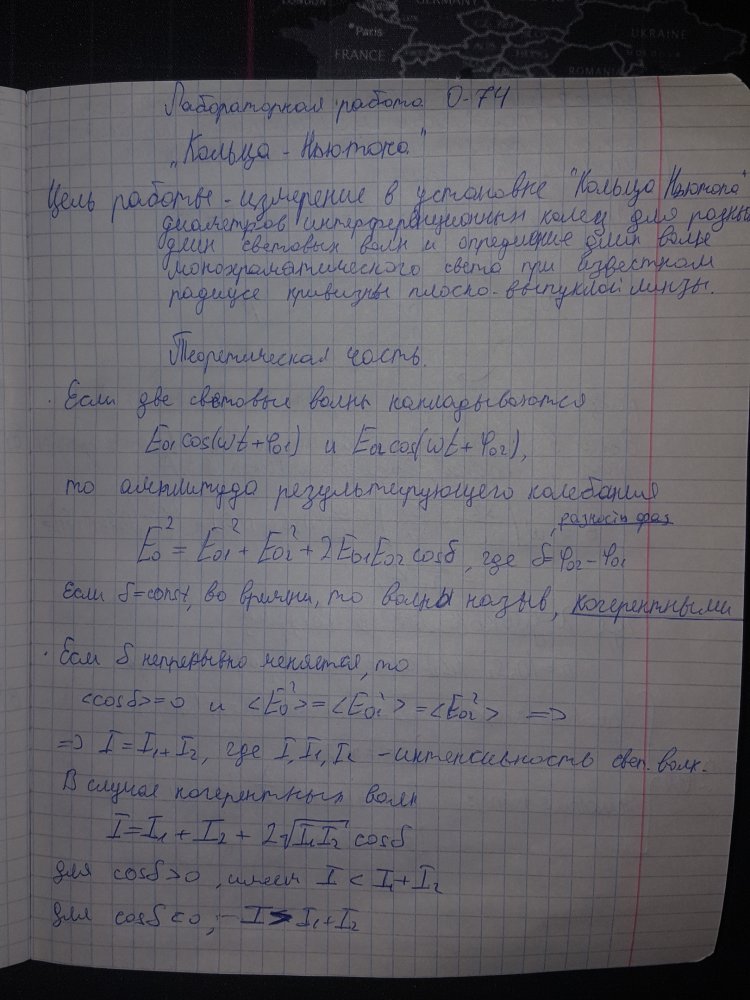 LONDON
Paris
FRANCE
UKRAINE
ROMANIA
Лабораторная работа О-74
"Кольца - Ньютона"
Цель работы - измерение в установке "Кольцо Ньютона"
диаметров интерференционных колец для разных
длин световых волн и определние длин волн
монохроматического света при известном
радиусе кривизны плоско-выпуклой линзы.
Теоретическая часть.
· Если две световые волны накладываются
E₀₁cos(ωt+φ₀₁) и E₀₂cos(ωt+φ₀₂),
то амплитуда результирующего колебания
разность фаз
E₀² = E₀₁² + E₀₂² + 2E₀₁E₀₂ cosδ, где δ=φ₀₂-φ₀₁
Если δ=const, во времени, то волны назыв, когерентными
· Если δ непрерывно меняется, то
<cosδ>=0 и <E₀²>=<E₀₁²>=<E₀₂²> =>
=> I=I₁+I₂, где I, I₁, I₂ -интенсивность свет. волн.
В случае когерентных волн
I=I₁+I₂+2√I₁I₂ cosδ
для cosδ>0, имеем I<I₁+I₂
для cosδ<0, -I>I₁+I₂